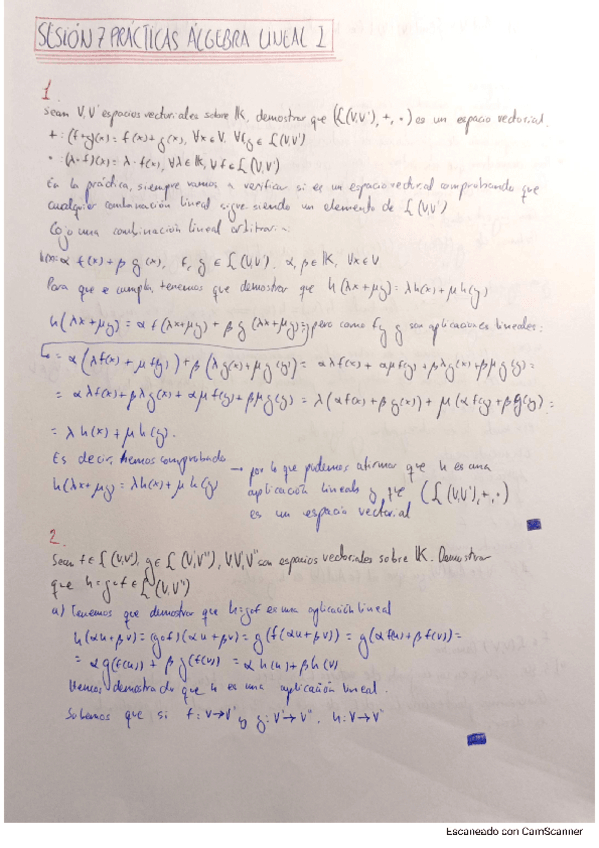 SESIÓN 7 PRÁCTICAS ÁLGEBRA LINEAL 1
1.
Sean V, V' espacios vectoriales sobre K, demostrar que (L(V,V'), +, ·) es un espacio vectorial.
+ : (f+g)(x) = f(x) + g(x), ∀x∈V, ∀f,g ∈ L(V,V')
· : (λ·f)(x) = λ·f(x), ∀λ∈K, ∀f∈L(V,V')
En la práctica, siempre vamos a verificar si es un espacio vectorial comprobando que
cualquier combinación lineal sigue siendo un elemento de L(V,V')
Cojo una combinación lineal arbitraria:
h(x)=α f(x) + β g(x), f, g ∈ L(V,V'). α, β ∈ K, ∀x∈V
Para que se cumpla, tenemos que demostrar que h(λx+μy) = λh(x) + μh(y)
h(λx+μy) = α f(λx+μy) + β g(λx+μy) = ; pero como f y g son aplicaciones lineales:
= α(λf(x) + μf(y)) + β(λg(x) + μg(y)) = αλf(x) + αμf(y) + βλg(x) + βμg(y) =
= αλf(x) + βλg(x) + αμf(y) + βμg(y) = λ(αf(x) + βg(x)) + μ(αf(y) + βg(y)) =
= λh(x) + μh(y).
Es decir, hemos comprobado → por lo que podemos afirmar que h es una
h(λx+μy) = λh(x) + μh(y) aplicación lineal y que (L(V,V'), +, ·)
es un espacio vectorial
2.
Sean f∈L(V,V'), g∈L(V',V''), V,V',V'' son espacios vectoriales sobre K. Demostrar
que h=g∘f∈L(V,V'')
a) Tenemos que demostrar que h=g∘f es una aplicación lineal
h(αu+βv) = (g∘f)(αu+βv) = g(f(αu+βv)) = g(αf(u)+βf(v)) =
= αg(f(u)) + βg(f(v)) = αh(u) + βh(v)
Hemos demostrado que h es una aplicación lineal.
Sabemos que si f: V→V' y g: V'→V''. h: V→V''
Escaneado con CamScanner